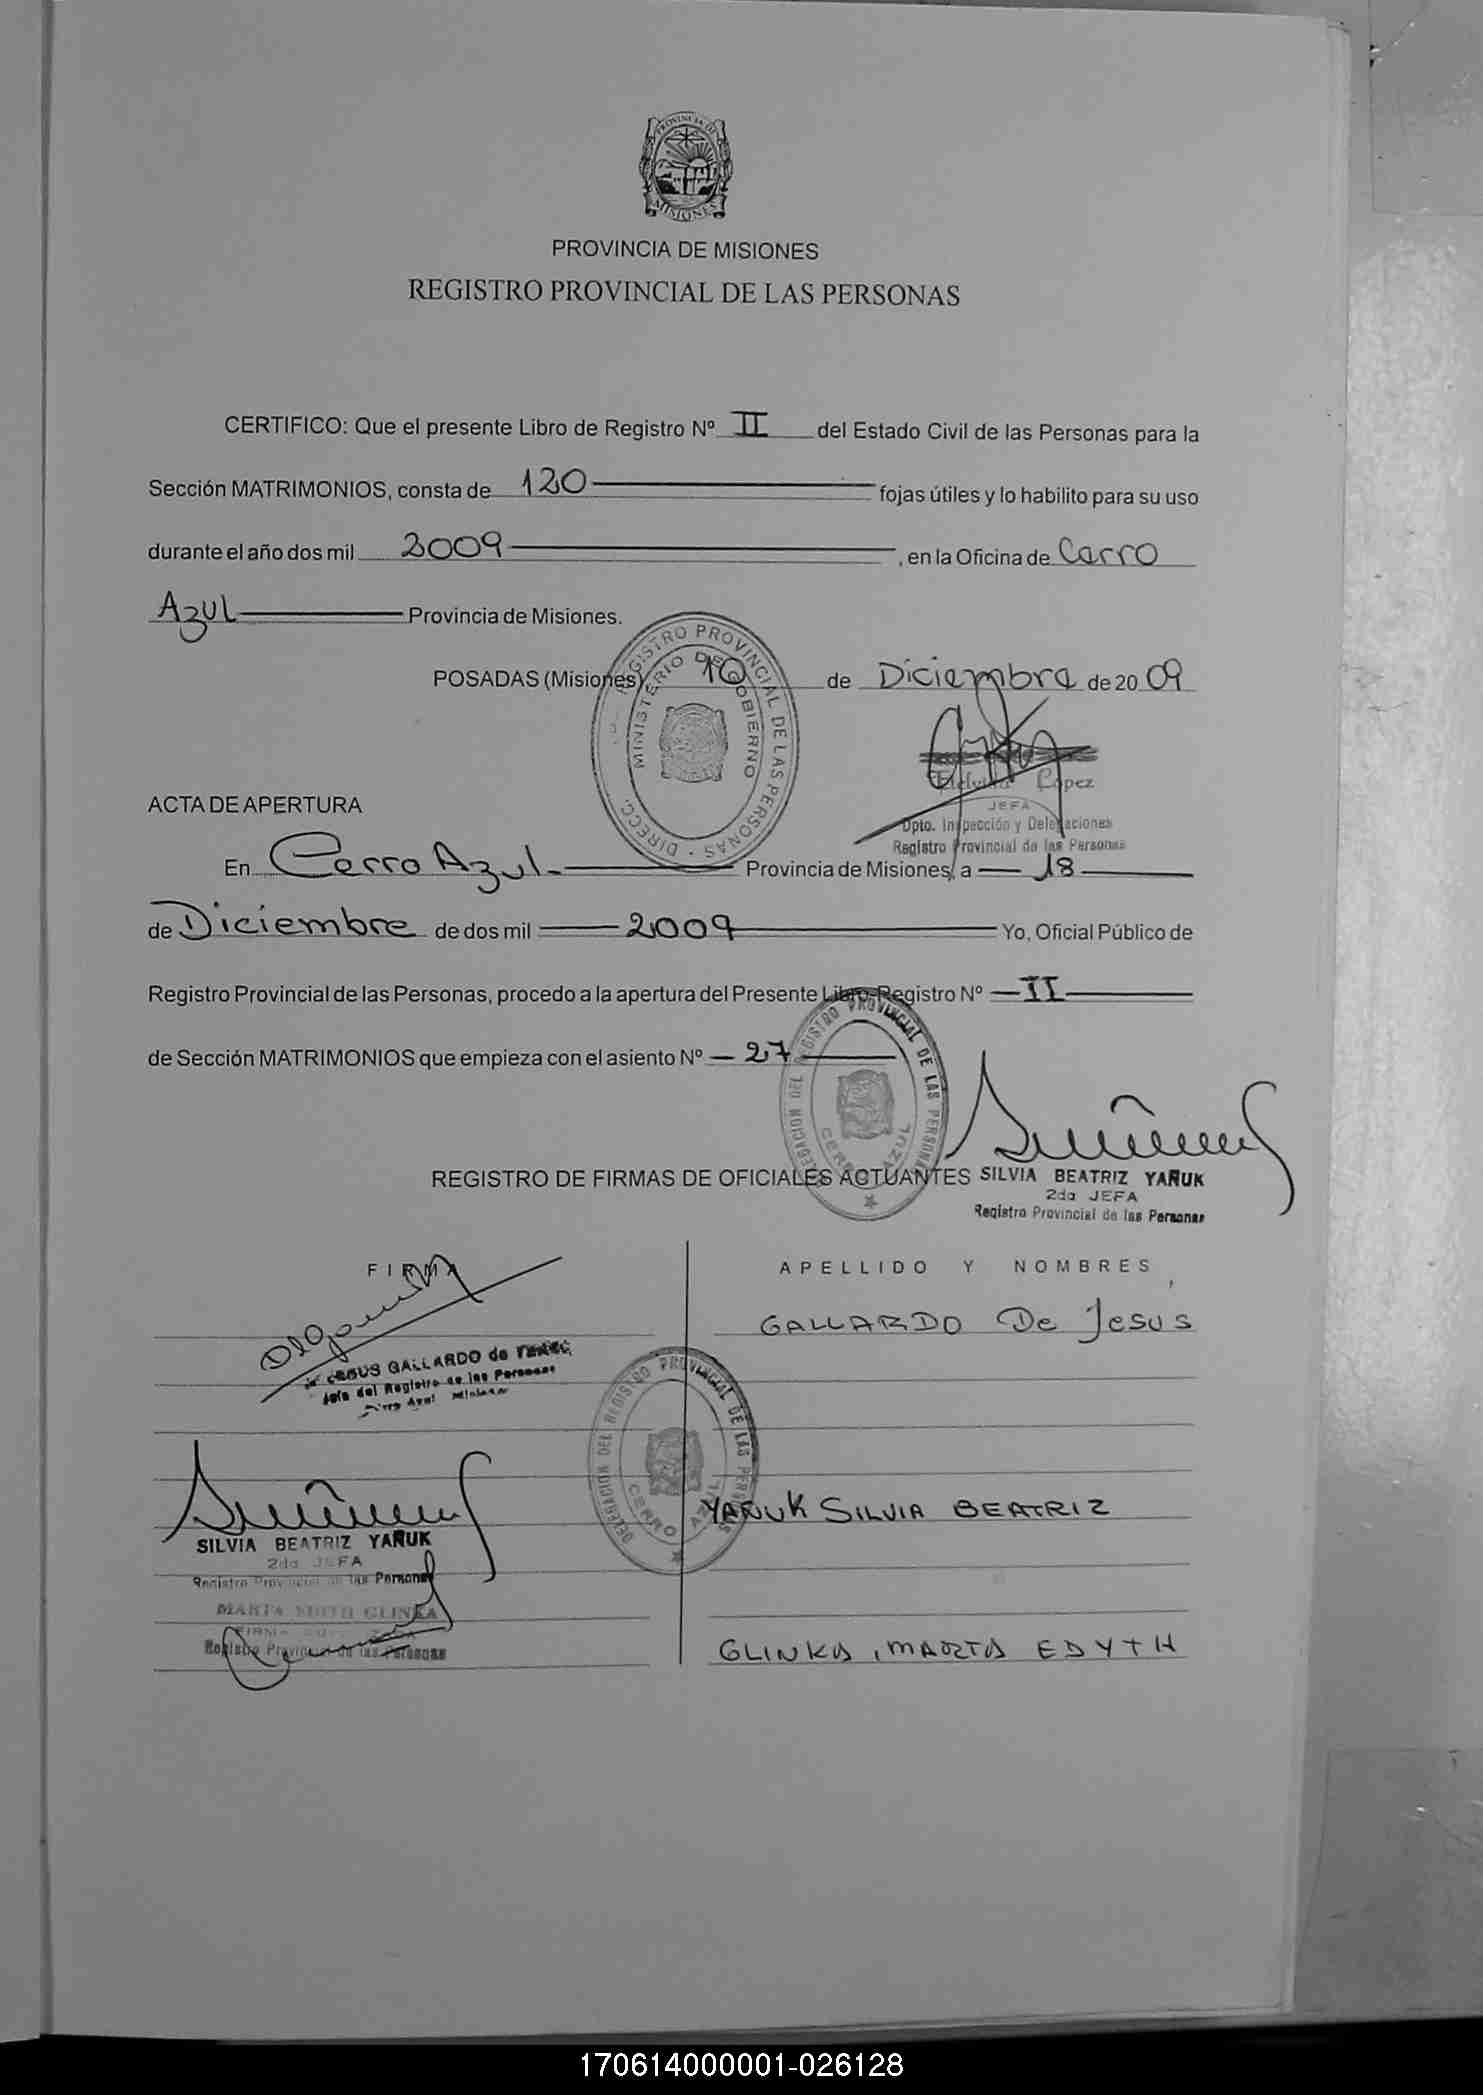 PROVINCIA DE
MISIONES
PROVINCIA DE MISIONES
REGISTRO PROVINCIAL DE LAS PERSONAS
CERTIFICO: Que el presente Libro de Registro Nº II del Estado Civil de las Personas para la
Sección MATRIMONIOS, consta de 120 fojas útiles y lo habilito para su uso
durante el año dos mil 2009, en la Oficina de Cerro
Azul Provincia de Misiones.
POSADAS (Misiones) 10 de Diciembre de 20 09
DIRECC. REGISTRO PROVINCIAL DE LAS PERSONAS
MINISTERIO DE GOBIERNO
López
JEFA
Dpto. Inspección y Delegaciones
Registro Provincial de las Personas
ACTA DE APERTURA
En Cerro Azul Provincia de Misiones, a 18
de Diciembre de dos mil 2009 Yo, Oficial Público de
Registro Provincial de las Personas, procedo a la apertura del Presente Libro-Registro Nº II
de Sección MATRIMONIOS que empieza con el asiento Nº 27
DELEGACION DEL REGISTRO PROVINCIAL DE LAS PERSONAS
CERRO AZUL
REGISTRO DE FIRMAS DE OFICIALES ACTUANTES
SILVIA BEATRIZ YAÑUK
2da JEFA
Registro Provincial de las Personas
FIRMA
APELLIDO Y NOMBRES
GALLARDO De Jesus
JESUS GALLARDO de
Jefa del Registro de las Personas
Cerro Azul Misiones
DELEGACION DEL REGISTRO PROVINCIAL DE LAS PERSONAS
CERRO AZUL
YAÑUK SILVIA BEATRIZ
SILVIA BEATRIZ YAÑUK
2da JEFA
Registro Provincial de las Personas
MARTA EDITH GLINKA
FIRMA
Registro Provincial de las Personas
GLINKA, MARTA EDYTH
170614000001-026128